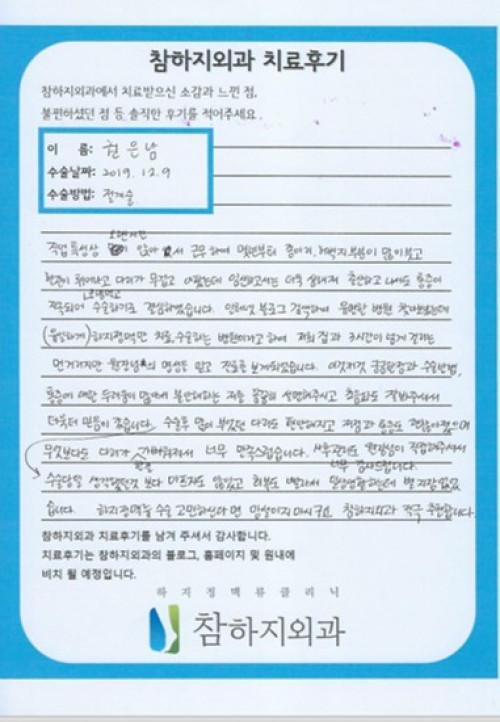 참하지외과 치료후기
참하지외과에서 치료받으신 소감과 느낀 점,
불편하셨던 점 등 솔직한 후기를 적어주세요.
이 름: 권은남
수술날짜: 2019. 12. 9
수술방법: 절개술
오랜시간
직업 특성상 앉아 서서 근무하며 몇년부터 종아리, 허벅지부분이 많이붓고
튀어나오고 다리가 무겁고 임신하고서는 더욱 심해져 출산하고 나서도 통증이
지속되어 수술하기로 결심하였습니다. 인터넷 블로그 검색하며 유명한 병원 찾아봤는데
(유일하게) 하지정맥만 치료, 수술하는 병원이라고 하여 저희 집과 3시간이 넘게 걸리는
먼거리지만 원장님의 명성을 믿고 진료를 보게되었습니다. 이것저것 궁금한점과 수술방법,
통증에 대한 두려움이 불안해하는 저를 꼼꼼히 설명해주시고 초음파도 잘봐주셔서
더욱더 믿음이 갔습니다. 수술후 많이 부었던 다리도 편안해지고 저림과 통증도 괜찮아졌으며
무엇보다도 다리가 한결 가벼워져서 너무 만족스럽습니다. 사후관리도 원장님이 직접해주셔서
너무 감사드립니다.
수술당일 생각했던것 보다 아프지도 않았고 회복도 빨라서 일상생활하는데 별 지장없었
습니다. 하지정맥류 수술 고민하신다면 망설이지 마시구요 참하지외과 적극 추천합니다.
참하지외과 치료후기를 남겨 주셔서 감사합니다.
치료후기는 참하지외과의 블로그, 홈페이지 및 원내에
비치 될 예정입니다.
하지정맥류클리닉
참하지외과